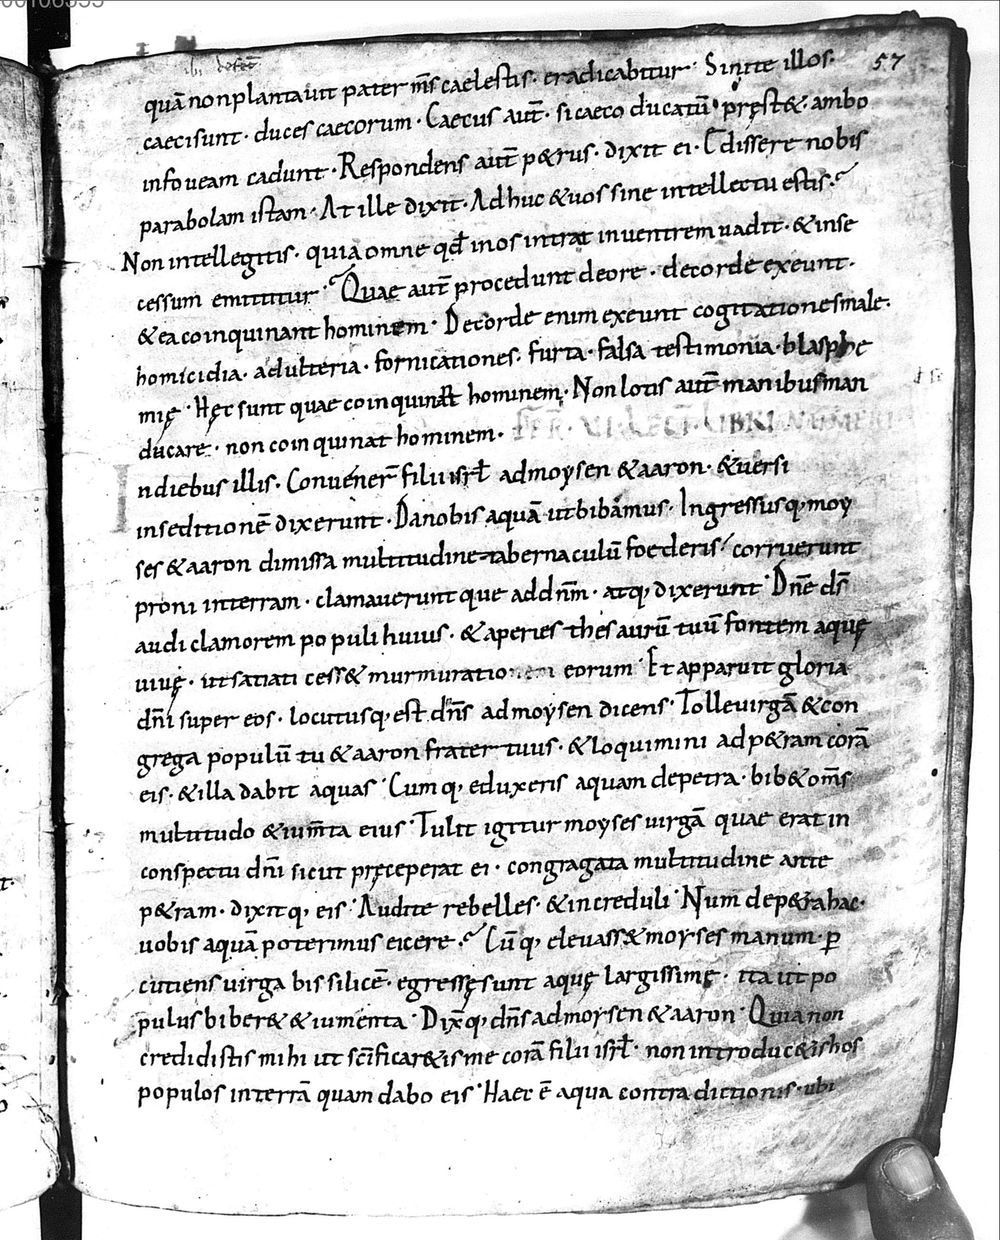 57
quā non plantauit pater m̅s caelestis · eradicabitur · Sinite illos ·
caeci sunt · duces caecorum · Caecus aut̅ · si caeco ducatū · pręst& · ambo
in foueam cadunt · Respondens aut̅ p&rus · dixit ei · Edissere nobis
parabolam istam · At ille dixit · Adhuc & uos sine intellectu estis ·
Non intellegitis · quia omne qđ in os intrat in uentrem uadit · & inse
cessum emittitur · Quae aut̅ procedunt de ore · de corde exeunt ·
& ea coinquinant hominem · De corde enim exeunt cogitationes male ·
homicidia · adulteria · fornicationes · furta · falsa testimonia · blasphe
mię · Hęc sunt quae coinquinant hominem · Non lotis aut̅ manibus man
ducare · non coinquinat hominem · FER · VI · LECT · LIBRI NUMERI
In diebus illis · Conuener̅ filii isrł ad moysen & aaron · & uersi
in seditionē dixerunt · Da nobis aquā ut bibamus · Ingressusq; moy
ses & aaron dimissa multitudine tabernaculū foederis · corruerunt
proni in terram · clamaueruntque ad dn̅m · atq; dixerunt · Dn̅e ds̅
audi clamorem populi huius · & aperies thesaurū tuū fontem aquę
uiuę · ut satiati cess& murmurationem eorum · Et apparuit gloria
dn̅i super eos · locutusq; est dn̅s ad moysen dicens · Tolle uirgā & con
grega populū tu & aaron frater tuus · & loquimini ad p&ram corā
eis · & illa dabit aquas · Cumq; eduxeris aquam de petra · bib& om̅s
multitudo & ium̅ta eius · Tulit igitur moyses uirgā quae erat in
conspectu dn̅i sicut pręceperat ei · congragata multitudine ante
p&ram · dixitq; eis · Audite rebelles · & increduli · Num de p&ra hac ·
uobis aquā poterimus eicere · Cūq; eleuass& moyses manum · ꝑ
cutiens uirga bis silicē · egressę sunt aquę largissimę · ita ut po
pulus biber& & iumenta · Dix̅q; dn̅s ad moysen & aaron · Quia non
credidistis mihi ut sc̅ificar&is me corā filii isrł · non introduc&is hos
populos in terrā quam dabo eis · Haec ē aqua contradictionis · ubi